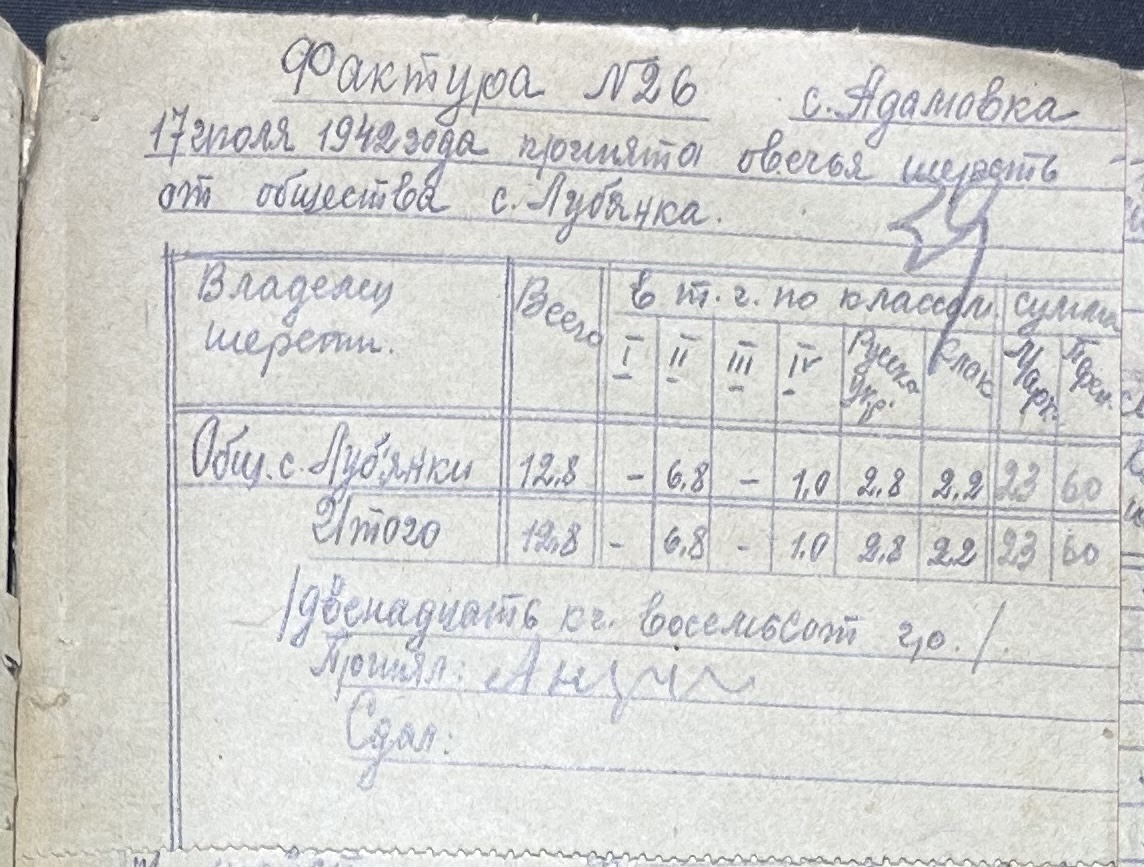 Фактура №26 с. Адамовка
17 июля 1942 года принята овечья шерсть
от общества с. Лубянка.
Владелец шерсти. Всего в т. ч. по классам сумма
I II III IV Русско Укр. Клок Марк. Пфен.
Общ. с. Луб'янки 12,8 - 6,8 - 1,0 2,8 2,2 23 60
Итого 12,8 - 6,8 - 1,0 2,8 2,2 23 60
/двенадцать кг. восемьсот гр./
Принял:
Сдал: